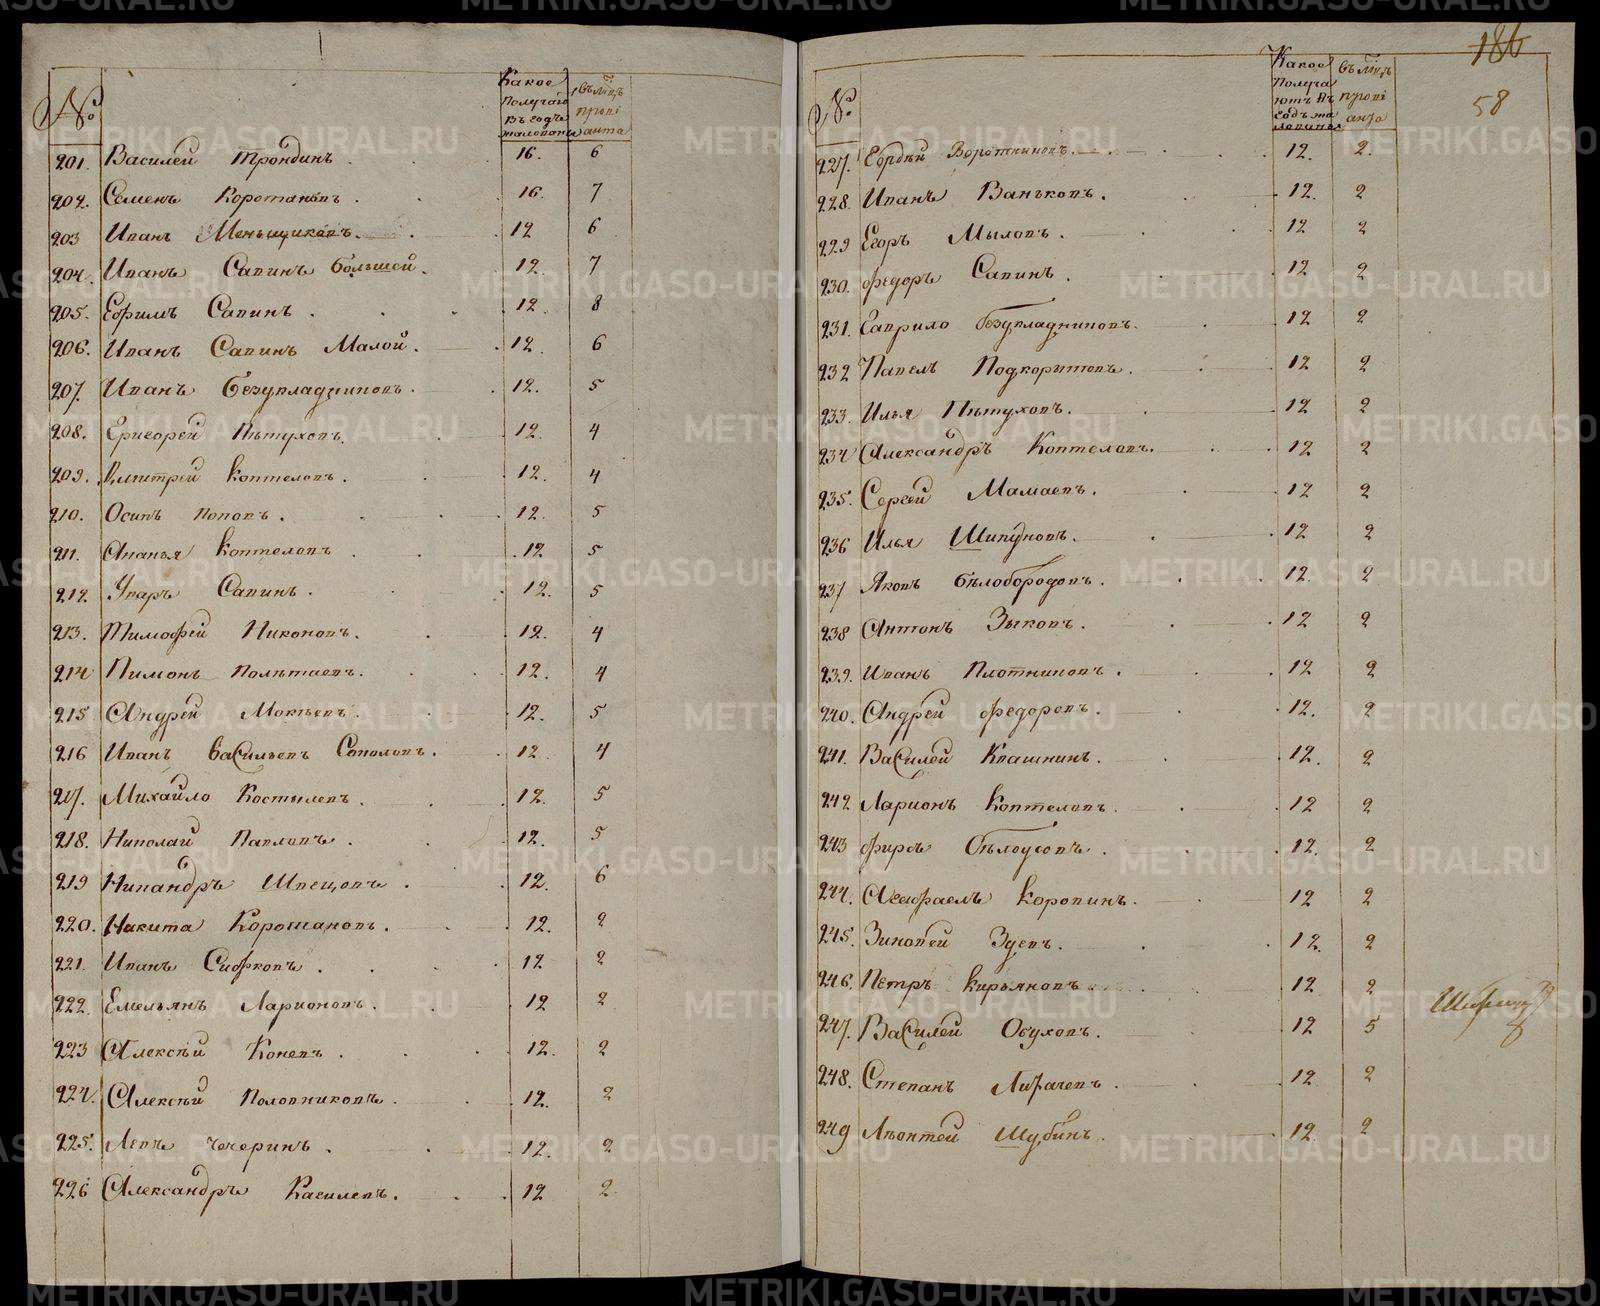 №
Какое
получаютъ
въ годъ
жалованье
въ міцъ
прові
анта
201. Василей Трондинъ . . . 16. 6
202. Семенъ Коротановъ . . . 16. 7
203 Иванъ Меньщиковъ . . 12 6
204. Иванъ Савинъ большей . . 12. 7
205. Ефимъ Савинъ . . . 12. 8
206. Иванъ Савинъ Малой . . 12. 6
207. Иванъ Безукладниковъ . . 12. 5
208. Григорей Пѣтуховъ . . 12. 4
209. Дмитрей Коптеловъ . . 12. 4
210. Осипъ Поповъ . . . 12. 5
211. Ананья Коптеловъ . . 12 5
212. Уваръ Савинъ . . . 12. 5
213. Тимофѣй Никоновъ . . 12. 4
214 Пимонъ Полѣтаевъ . . 12. 4
215 Андрей Мокѣевъ . . 12. 5
216 Иванъ Васильевъ Соколовъ . . 12 4
217. Михайло Костылевъ . . 12. 5
218. Николай Павловъ . . 12. 5
219 Никандръ Швецовъ . . 12. 6
220. Никита Корошановъ . . 12. 2
221. Иванъ Сифковъ . . . 12 2
222. Емельянъ Ларионовъ . . 12 2
223 Алексѣй Коневъ . . . 12. 2
224. Алексѣй Половниковъ . . 12. 2
225. Левъ Чечеринъ . . . 12. 2
226 Александръ Киселевъ . . 12 2.
186
58
№
Какое
Получа
ютъ въ
годъ жа
лованья
въ міцъ
прові
анта
227. Гордѣй Воротниковъ . . 12. 2.
228. Иванъ Ваньковъ . . 12. 2
229 Егоръ Мыловъ . . . 12 2
230. Федоръ Савинъ . . 12 2
231. Гаврило Безукладниковъ . . 12 2
232 Павелъ Подкорытовъ . . 12 2
233. Илья Пѣтуховъ . . 12 2
234 Александръ Коптеловъ . . 12 2
235. Сергей Мамаевъ . . 12 2
236 Илья Шипуновъ . . 12 2
237 Яковъ Бѣлобородовъ . . 12. 2
238 Антонъ Зыковъ . . 12 2
239. Иванъ Плотниковъ . . 12 2
240. Андрей Федоровъ . . 12. 2
241. Василей Квашнинъ . . 12. 2
242 Ларионъ Коптеловъ . . 12 2
243 Фирсъ Бѣлоусовъ . . 12. 2
244. Асафаелъ Коровинъ . . 12 2
245. Зиновей Зуевъ . . 12. 2
246. Петръ Кирьяновъ . . 12 2
247. Василей Обуховъ . . 12 5
248. Степанъ Лихачевъ . . 12 2
249 Лѣонтей Шубинъ . . 12. 2
METRIKI.GASO-URAL.RU